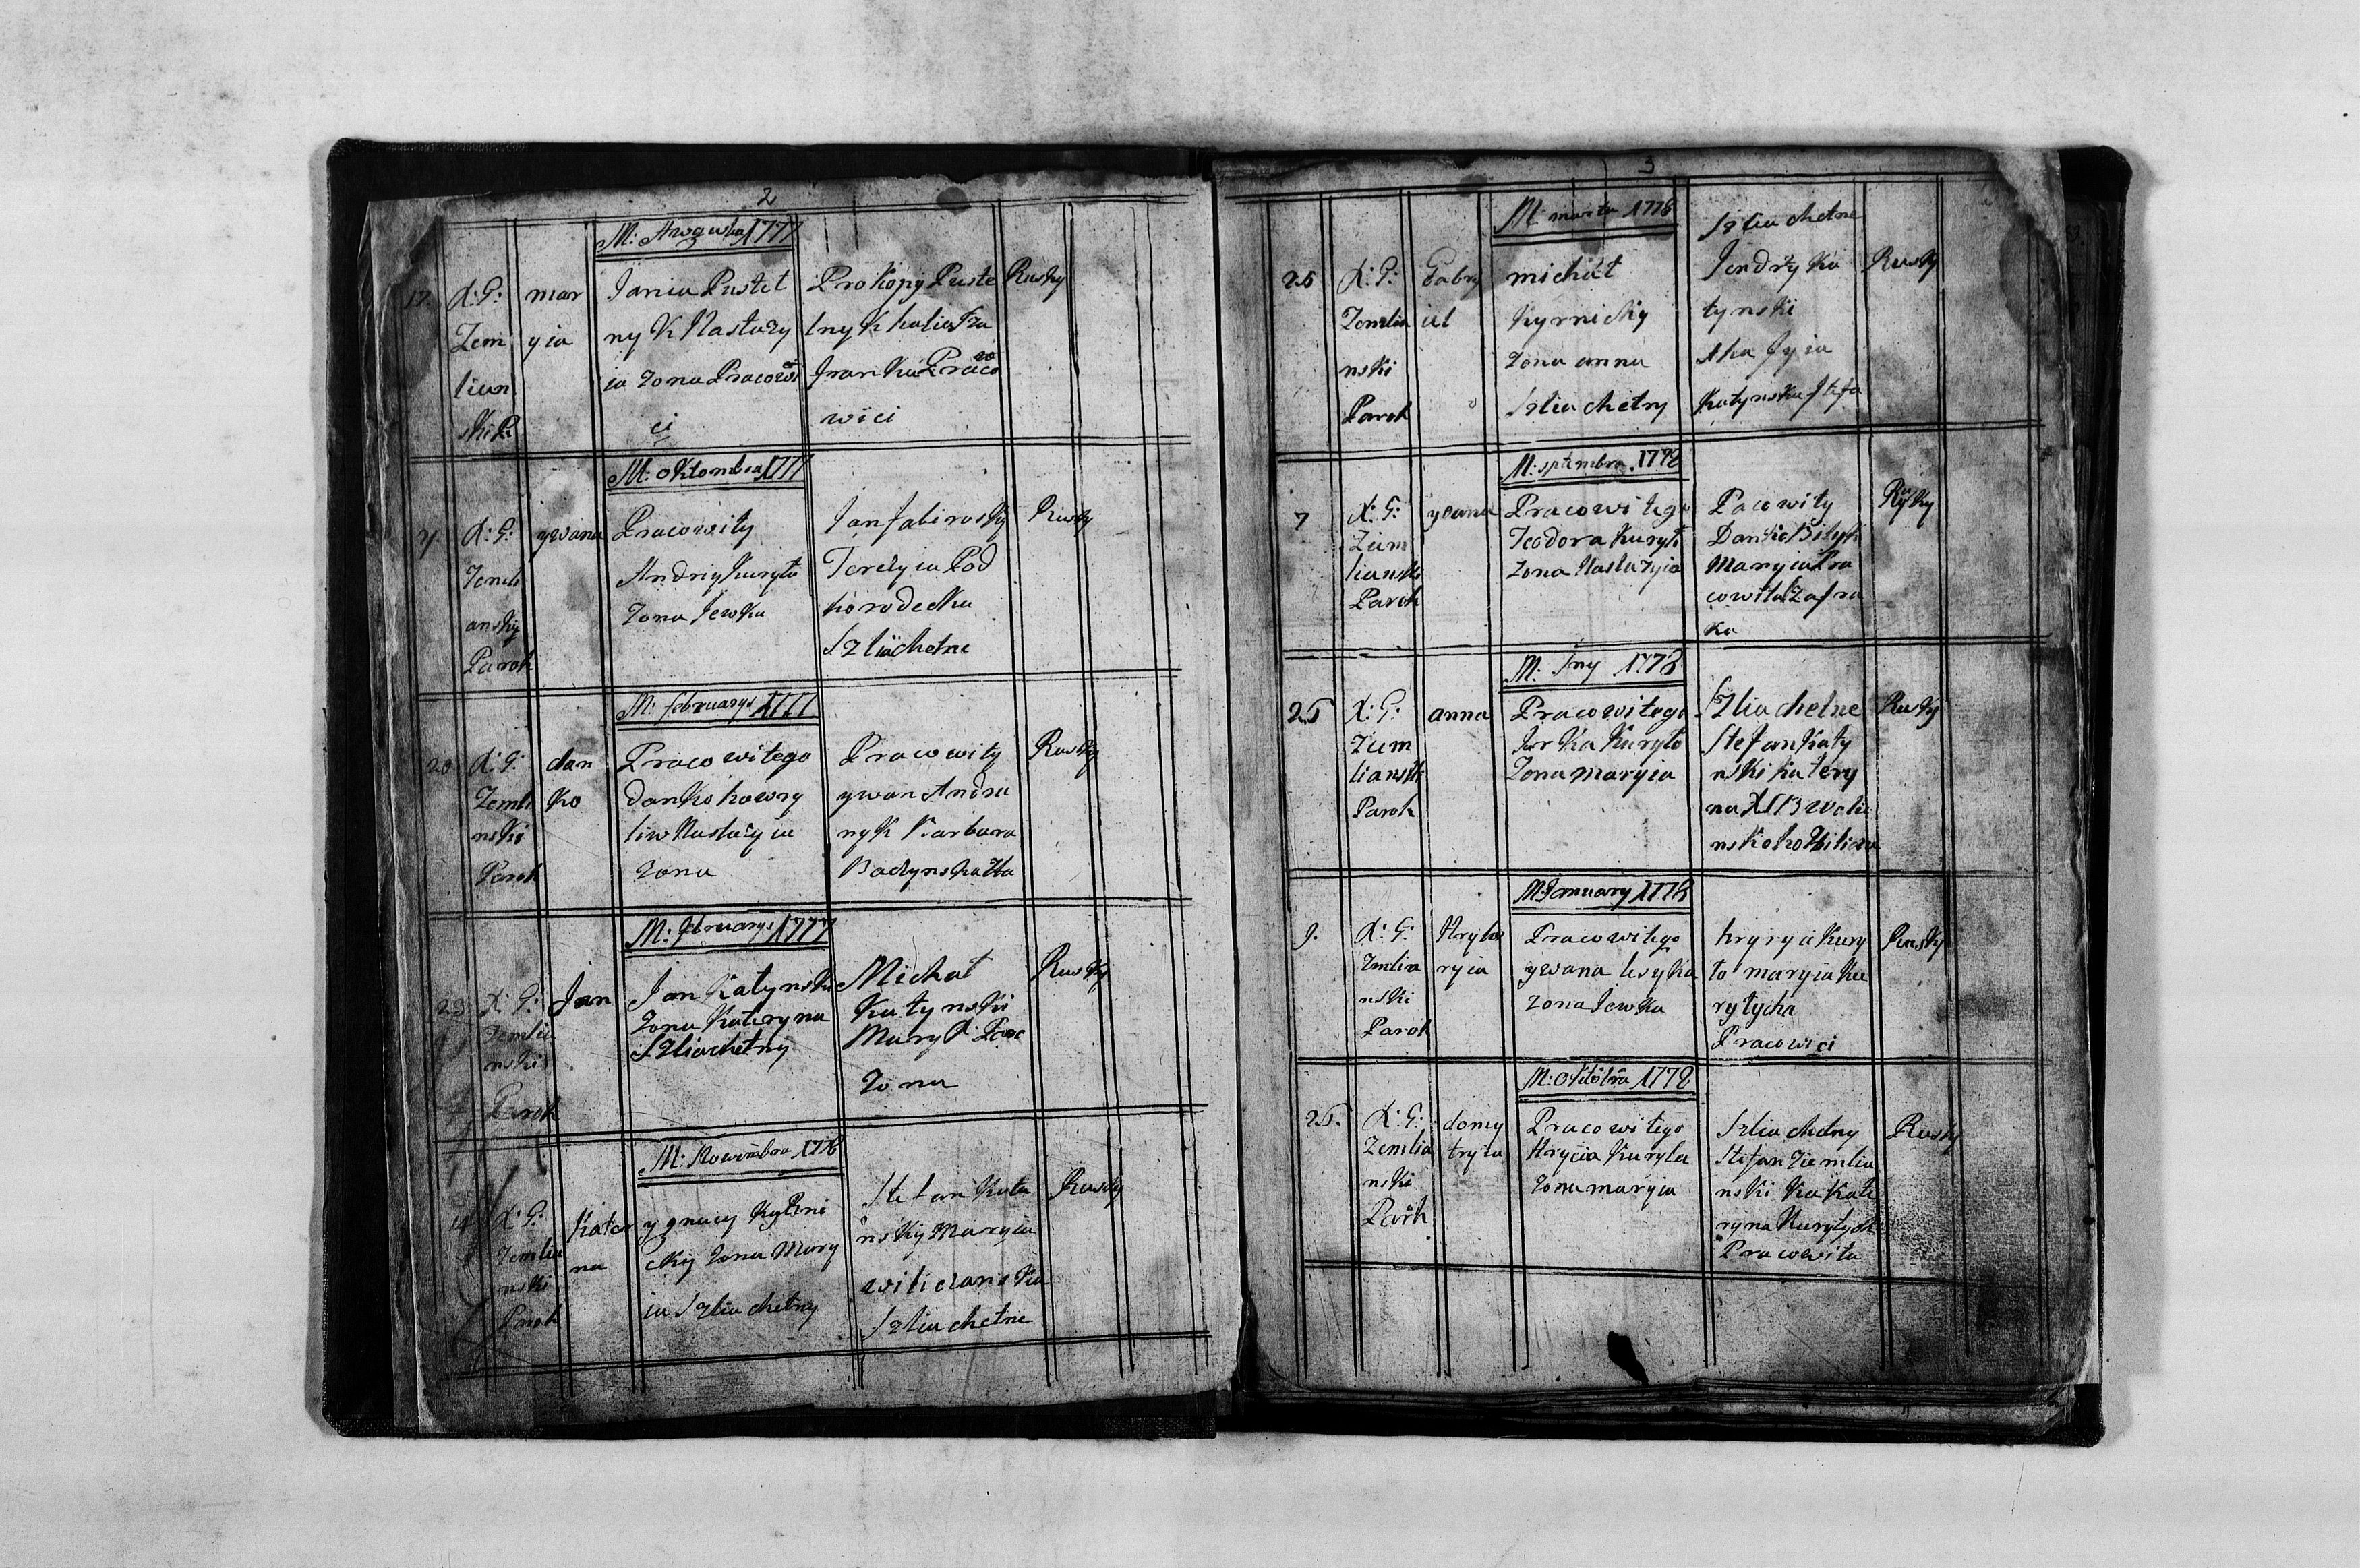 2
M: Awgusta 1777
17 X: G: Zem lian ski P
mar yia
Jania Pustel
ny K Nastazy
ia zona Pracowi
ci
Prokopy Puste
lny K halia Iza
Iwanka Praco
wici
Rusky
M: Oktombra 1777
X: G: Zemli ansky Paroh
ywana
Pracowity
Andriy Kuryło
zona Jewka
Jan
Terezyia Pod
horodecka
Szliachetne
Rusky
M: februarys 1777
20 X: G: Zemli nski Paroh
dan ko
Pracowitego
danko hawry
liw Nastazyia
zona
Pracowity
ywan Andru
nyk Barbara
Badynska
Rusky
M: februarys 1777
23 X: G: Zemlia nski Paroh
Jan
Jan Katynski
zona Kateryna
Szliachetny
Michał
Katynski
Mary
zona
Rusky
M: Nowembra 1778
14 X: G: Zemlia nski Paroh
Kater na
ygnacy Kyrni
cky zona Mary
ia Szliachetny
Stefan Katy
nsky Maryia
wiliczanska
Szliachetne
Rusky
3
M: marta 1778
25 X: G: Zemlia nski Paroh
Gabry iel
michał
Kyrnicky
zona anna
Szliachetny
Szliachetne
Jendrzy Ka
tynski
Ahafyia
Katynska Stefa
Rusky
M: septembra 1778
7 X: G: Ziem lianski Paroh
ywana
Pracowitego
Teodora Kuryło
zona Nastazyia
Pacowity
Danko Bilyk
Maryia Pra
cowita Zafra
ka
Rusky
M: Iny 1778
25 X: G: Zum lianski Paroh
anna
Pracowitego
Jurka Kuryło
zona maryia
Szliachetne
Stefan Katy
nski Katery
na
Rusky
M: January 1778
9. X: G: Zmlia nski Paroh
Hryho ryia
Pracowitego
ywana Lesyka
zona Jewka
hryryi Kury
ło maryia Ku
ryłycha
Pracowici
Rusky
M: Oktobra 1778
25. X: G: Zemlia nski Parh
domy tryta
Pracowitego
Hrycia Kuryla
zona maryia
Szliachetny
Stefan Ziemlia
nski Ka Kate
ryna Kuryłych
Pracowita
Rusky